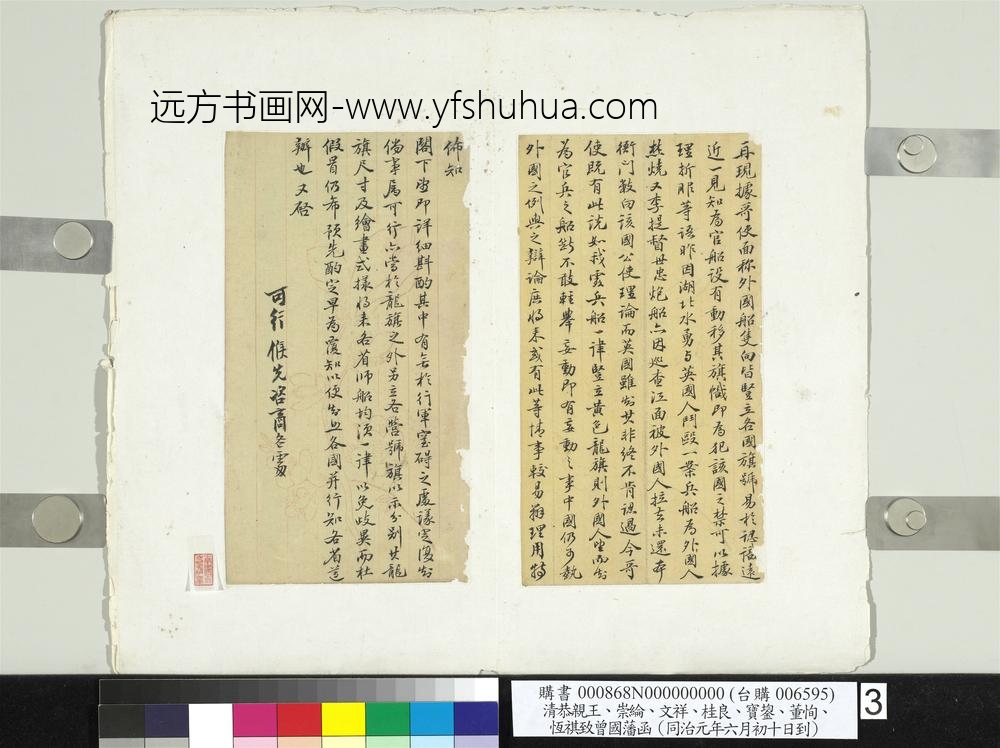 远方书画网-www.yfshuhua.com
再現據哥使面称外國船隻向皆竪立各國旗號易於認識遠
近一見知為官船設有動移其旗幟即為犯該國之禁可以據
理折服等語昨因湖北水勇与英國人鬥毆一案兵船為外國人
焚燒又李提督世忠炮船亦因巡查江面被外國人拉去未還本
衙门數向該國公使理論而英國雖知其非終不肯認過今哥
使既有此說如我處兵船一律竪立黃色龍旗則外國人望而知
為官兵之船斷不敢輕舉妄動即有妄動之事中國仍可執
外國之例與之辯論庶將来或有此等情事較易辦理用特
佈知
閣下望即詳細斟酌其中有無於行軍窒碍之處議定復知
倘事属可行亦當於龍旗之外另立各營號旗以示分别其龍
旗尺寸及繪畫式樣將来各省师船均須一律以免歧異而杜
假冒仍希預先酌定早為覆知以便知照各國并行知各省遵
辦也又啓
可行候先咨商各處
購書 000868N000000000 (台購 006595)
清恭親王、崇綸、文祥、桂良、寶鋆、董恂、
恆祺致曾國藩函（同治元年六月初十日到）
3